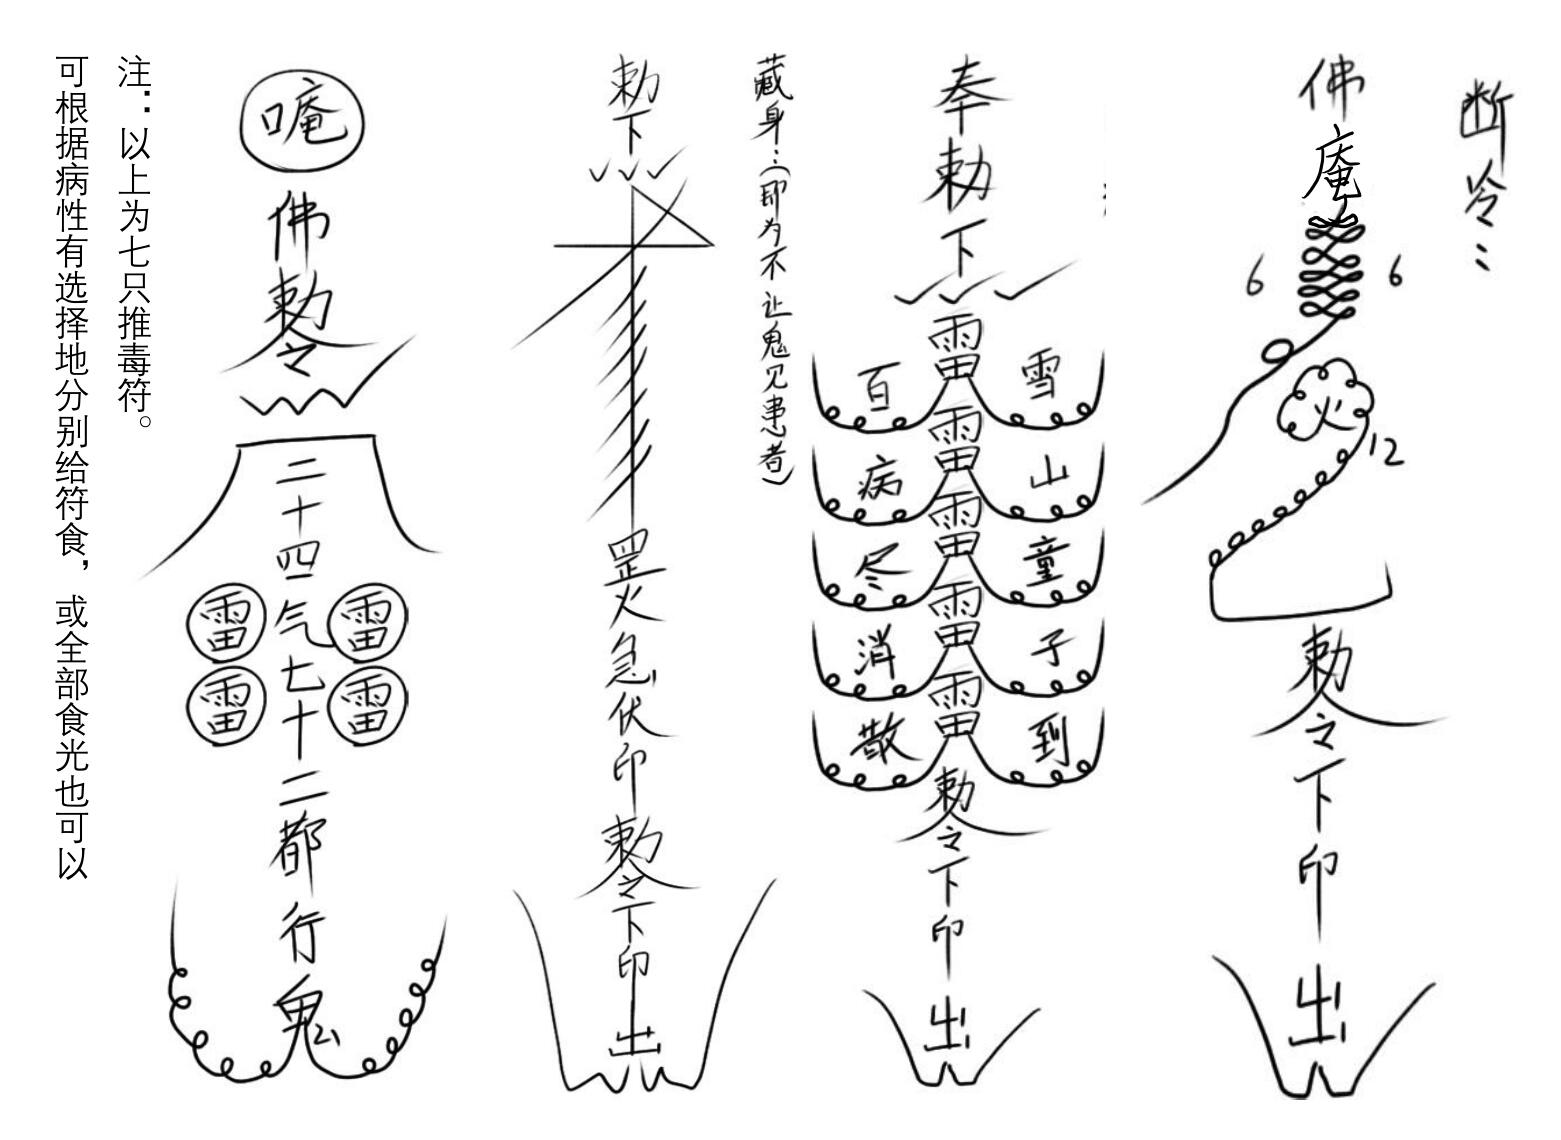 断冷：
佛
庵
6 6
火
12
勅令下印
出
奉勅下
雷雷雷雷雷
雪山童子到
百病尽消散
勅令下印
出
藏身：（即为不让鬼见患者）
勅下
罡火急伏印
勅令下印
出
唵
佛勅令
二十四气七十二都行鬼
雷雷
雷雷
注：以上为七只推毒符。
可根据病性有选择地分别给符食，或全部食光也可以